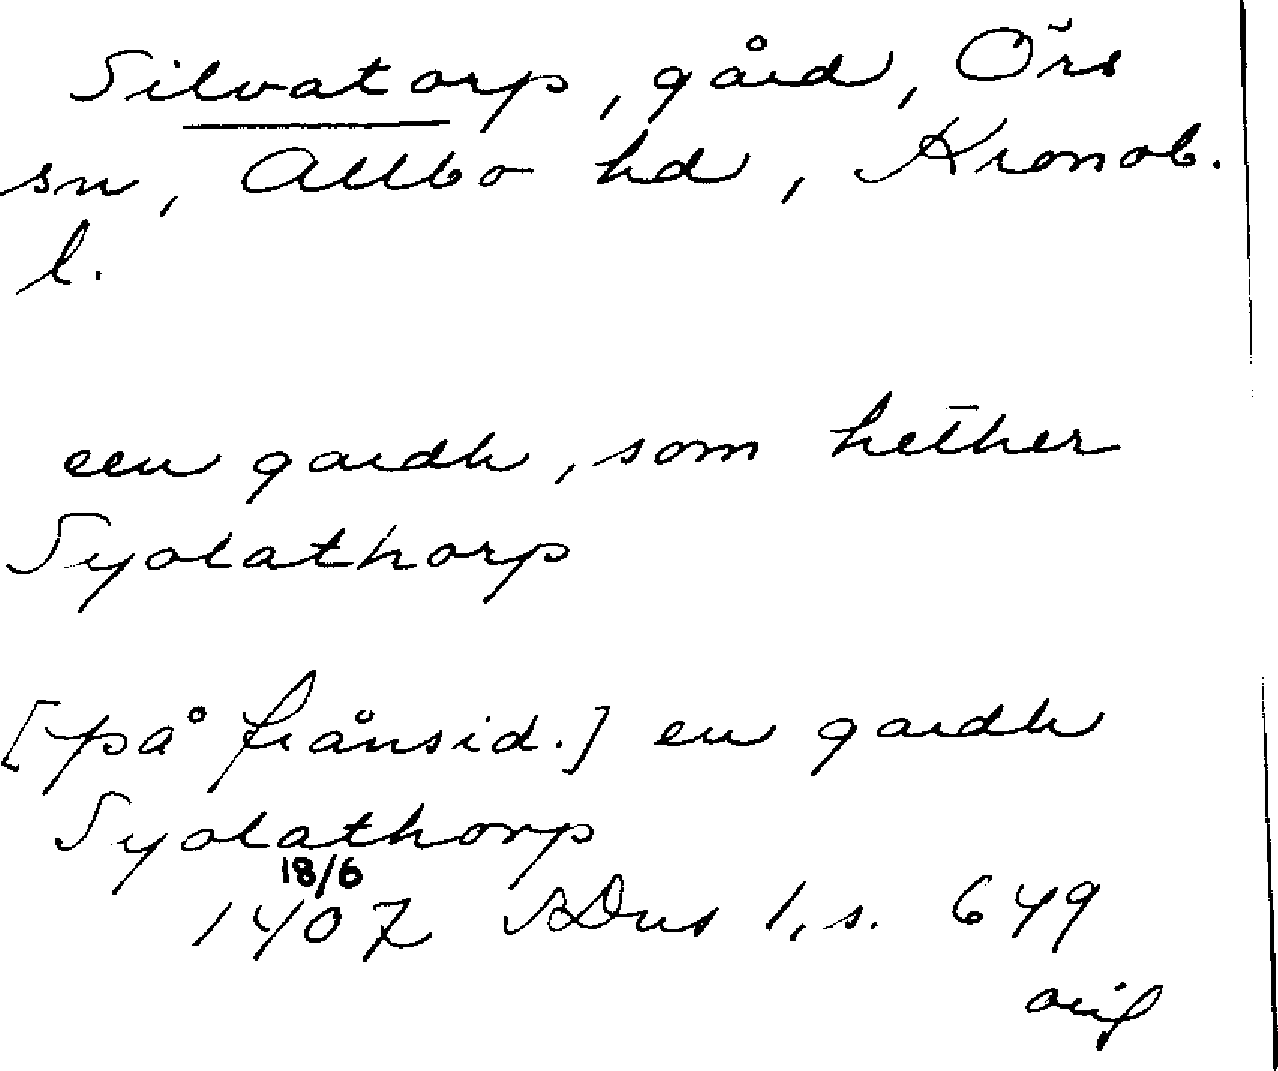 Silvatorp, gård, Örs
sn, Allbo hd, Kronob.
l.
een gardh, som hether
Syolathorp
[på frånsid.] en gardh
Syolathorp
18/6
1407 SDns 1, s. 649
orig